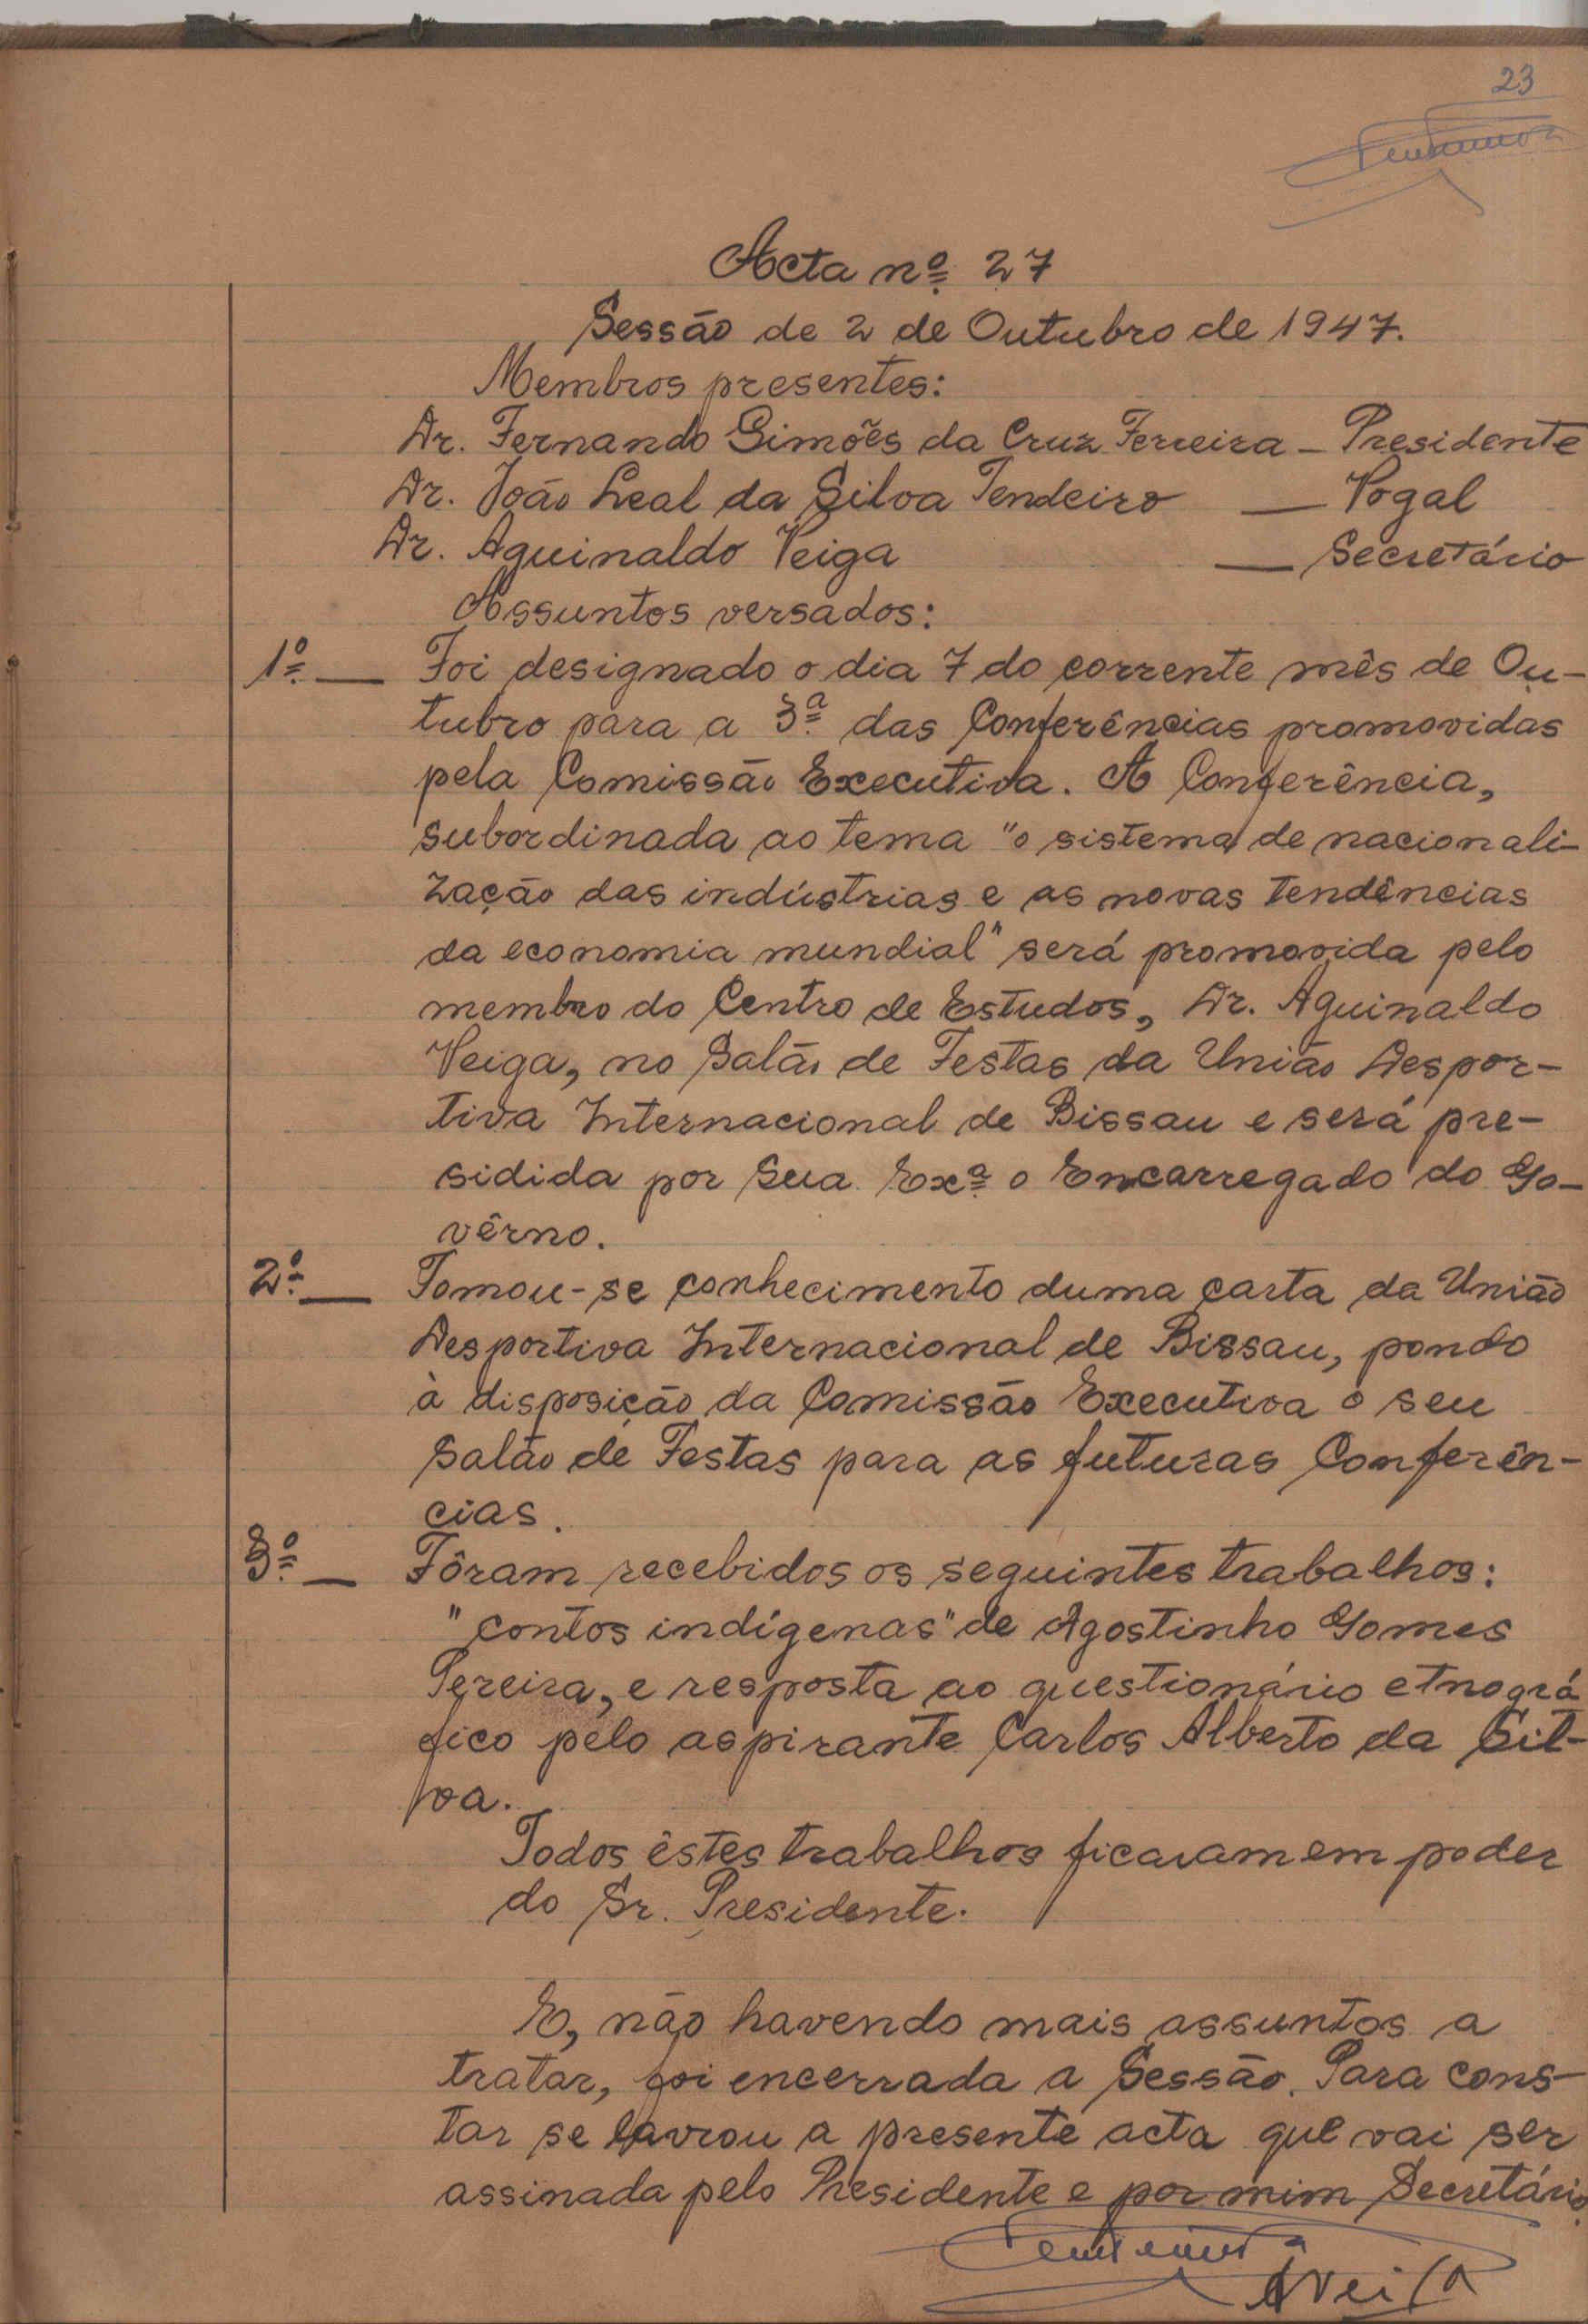 23
Acta nº 27
Sessão de 2 de Outubro de 1947.
Membros presentes:
Dr. Fernando Simões da Cruz Ferreira – Presidente
Dr. João Leal da Silva Tendeiro — Vogal
Dr. Aguinaldo Veiga — Secretário
Assuntos versados:
1º — Foi designado o dia 7 do corrente mês de Ou-
tubro para a 3ª das Conferências promovidas
pela Comissão Executiva. A Conferência,
subordinada ao tema "o sistema de nacionali-
zação das indústrias e as novas tendências
da economia mundial" será promovida pelo
membro do Centro de Estudos, Dr. Aguinaldo
Veiga, no Salão de Festas da União Despor-
tiva Internacional de Bissau e será pre-
sidida por Sua Exª o Encarregado do Go-
vêrno.
2º — Tomou-se conhecimento duma carta da União
Desportiva Internacional de Bissau, pondo
à disposição da Comissão Executiva o seu
Salão de Festas para as futuras Conferên-
cias.
3º — Fôram recebidos os seguintes trabalhos:
"contos indígenas" de Agostinho Gomes
Pereira, e resposta ao questionário etnográ
fico pelo aspirante Carlos Alberto da Sil-
va.
Todos êstes trabalhos ficaram em poder
do Sr. Presidente.
E, não havendo mais assuntos a
tratar, foi encerrada a Sessão. Para cons-
tar se lavrou a presente acta que vai ser
assinada pelo Presidente e por mim Secretário.
AVeiga